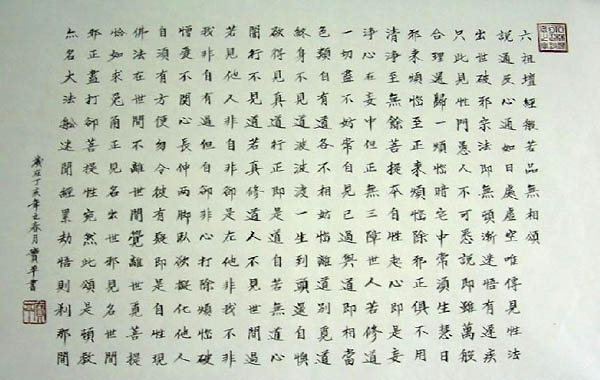 六祖壇經般若品無相頌
說通及心通如日處虛空唯傳見性法
出世破邪宗法即無頓漸迷悟有遲疾
只此見性門愚人不可悉說即雖萬般
合理還歸一煩惱暗宅中常須生慧日
邪來煩惱至正來煩惱除邪正俱不用
清淨至無餘菩提本自性起心即是妄
淨心在妄中但正無三障世人若修道
一切盡不妨常自見己過與道即相當
色類自有道各不相妨惱離道別覓道
終身不見道波波渡一生到頭還自懊
欲得見真道行正即是道自若無道心
闇行不見道若真修道人不見世間過
若見他人非自非卻是左他非我不非
我非自有過但自卻非心打除煩惱破
憎愛不關心長伸兩腳臥欲擬化他人
自須有方便勿令彼有疑即是自性現
佛法在世間不離世間覺離世覓菩提
恰如求兔角正見名出世邪見名世間
邪正盡打卻菩提性宛然此頌是頓教
亦名大法船迷聞經累劫悟則剎那間
歲在丁亥年之春月寶華書